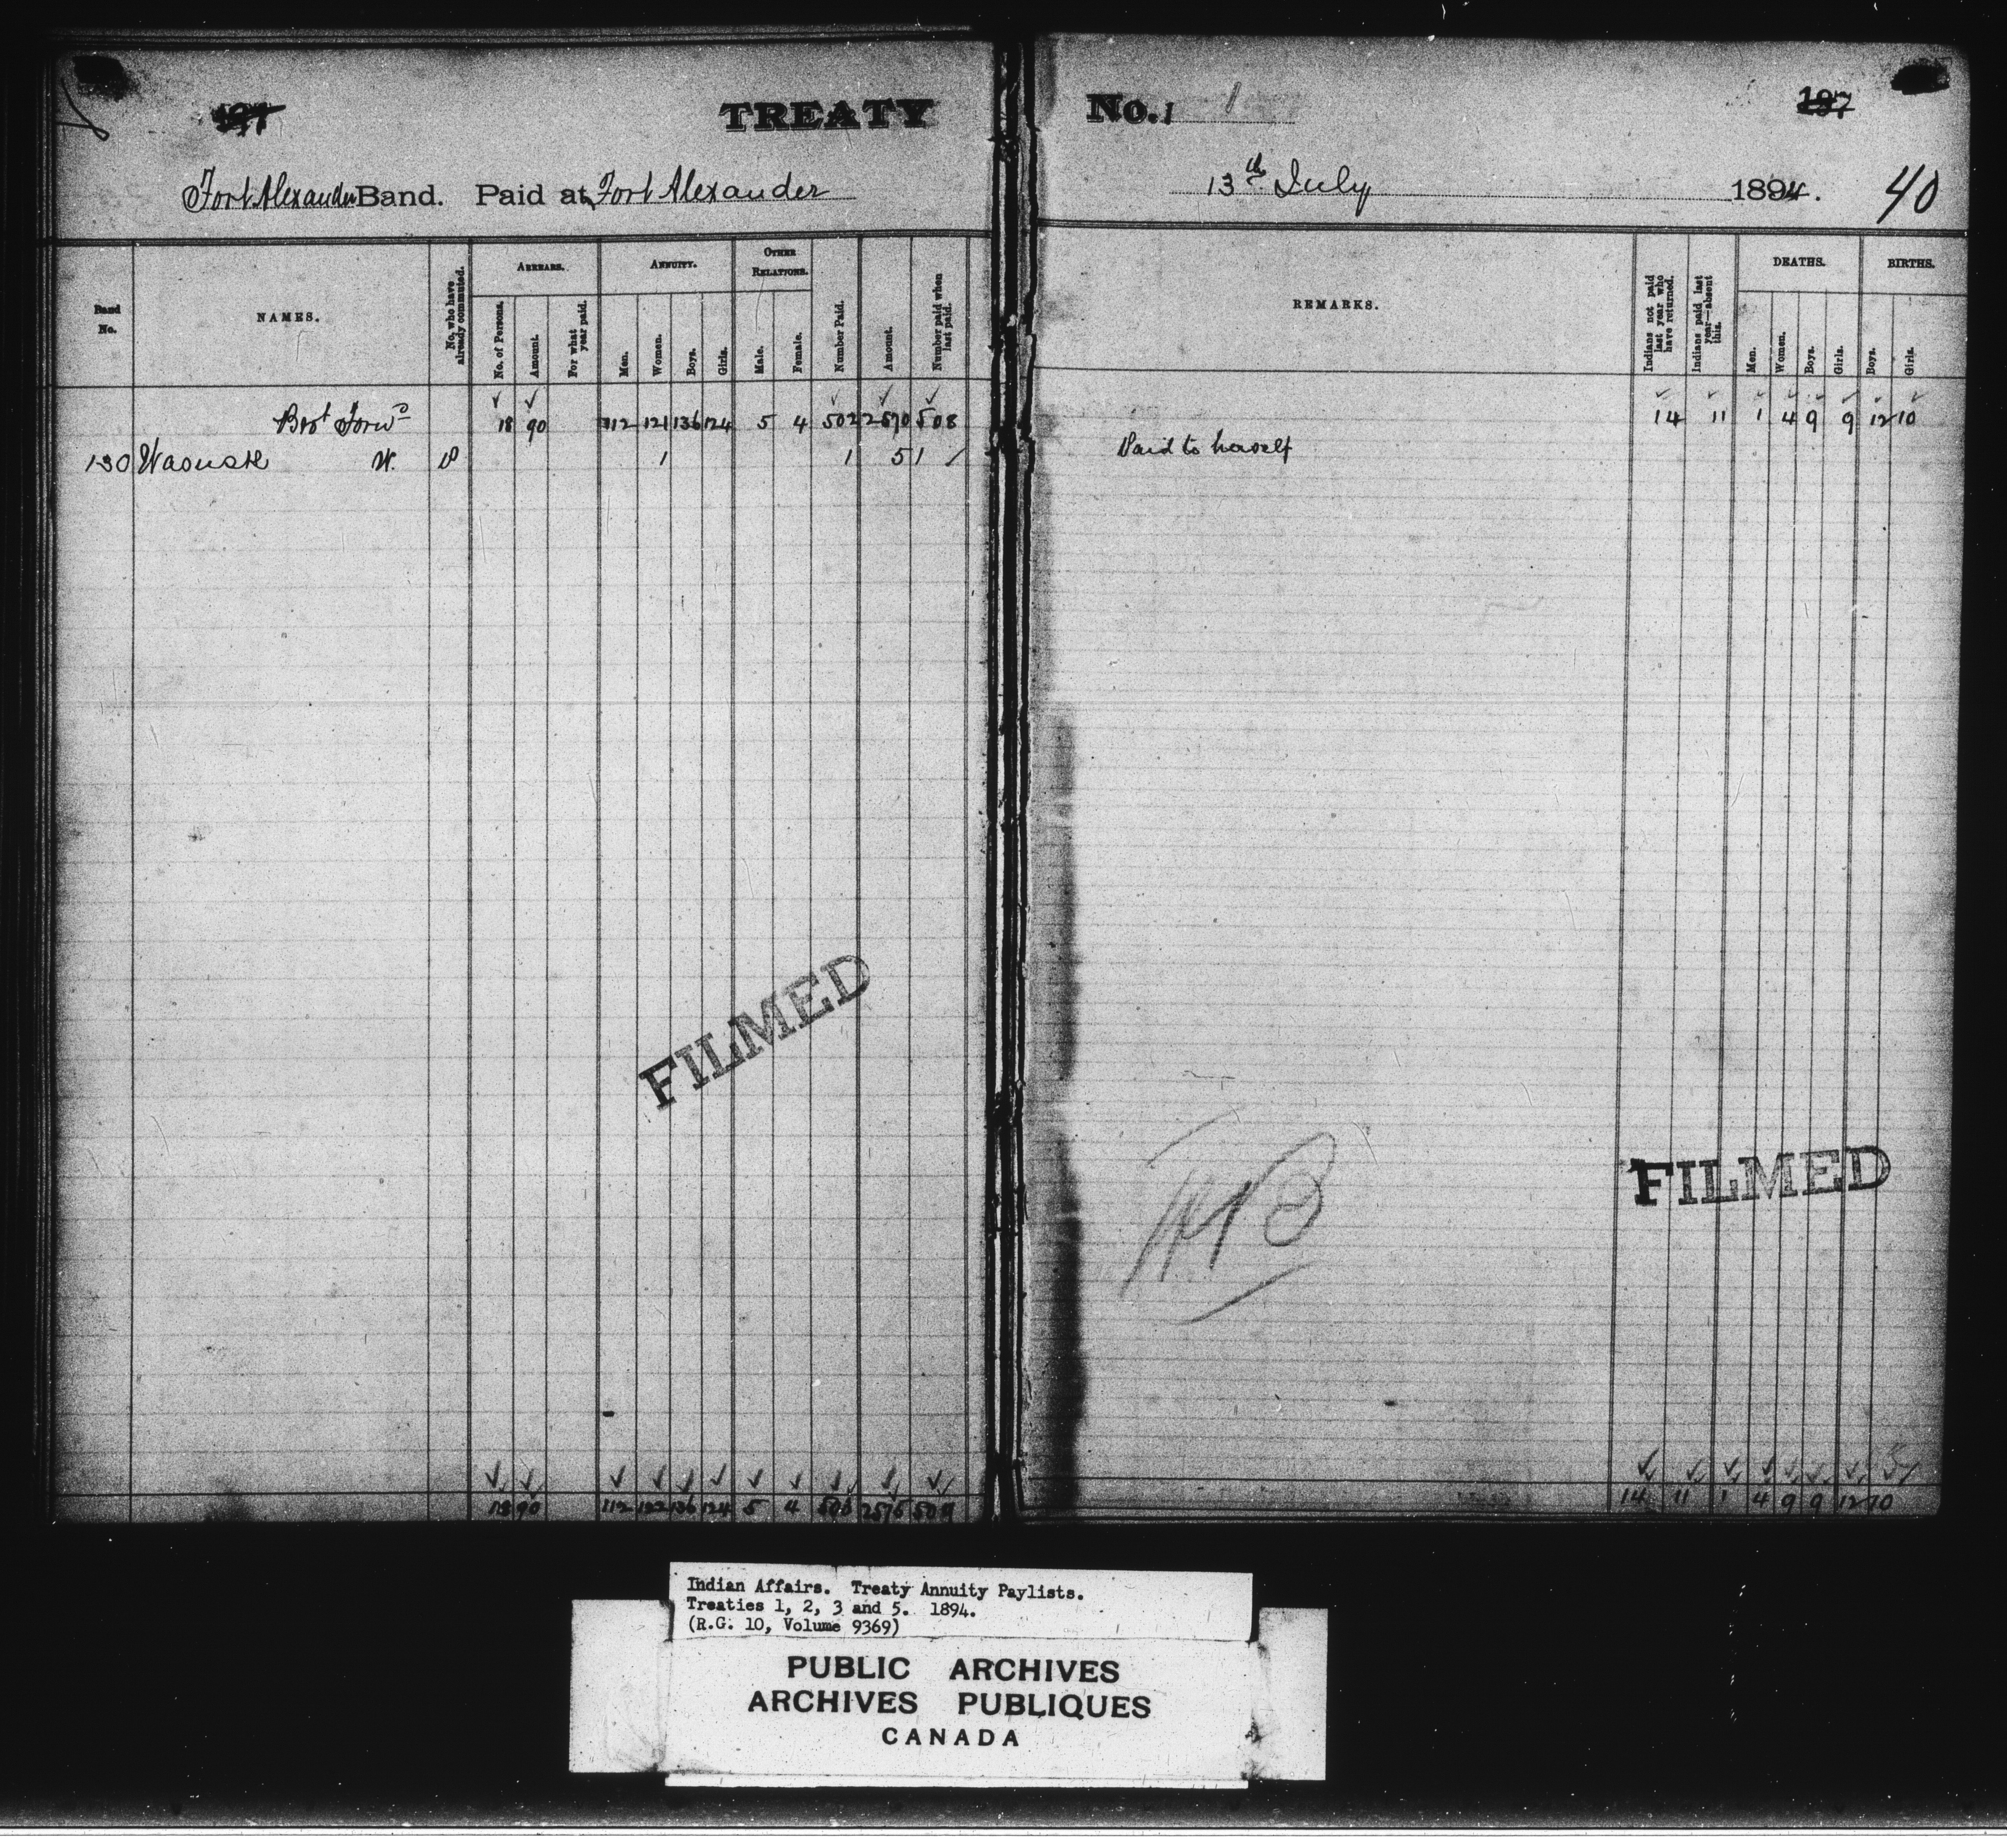 TREATY No. 1 1
197 197
Fort Alexander Band. Paid at Fort Alexander 13th July 1894. 40
Band No. NAMES. No. who have already commuted. ARREARS. No. of Persons. Amount. For what year paid. ANNUITY. Men. Women. Boys. Girls. OTHER RELATIONS. Male. Female. Number Paid. Amount. Number paid when last paid. REMARKS. Indians not paid last year who have returned. Indians paid last year—absent this. DEATHS. Men. Women. Boys. Girls. BIRTHS. Boys. Girls.
Brot Forwd 18 90 112 121 136 124 5 4 502 2570 508 14 11 1 4 9 9 12 10
130 W. P 1 1 5 1 Paid to herself
FILMED
FILMED
18 90 112 122 136 124 5 4 2575 509 14 11 1 4 9 9 12 10
Indian Affairs. Treaty Annuity Paylists.
Treaties 1, 2, 3 and 5. 1894.
(R.G. 10, Volume 9369)
PUBLIC ARCHIVES
ARCHIVES PUBLIQUES
CANADA